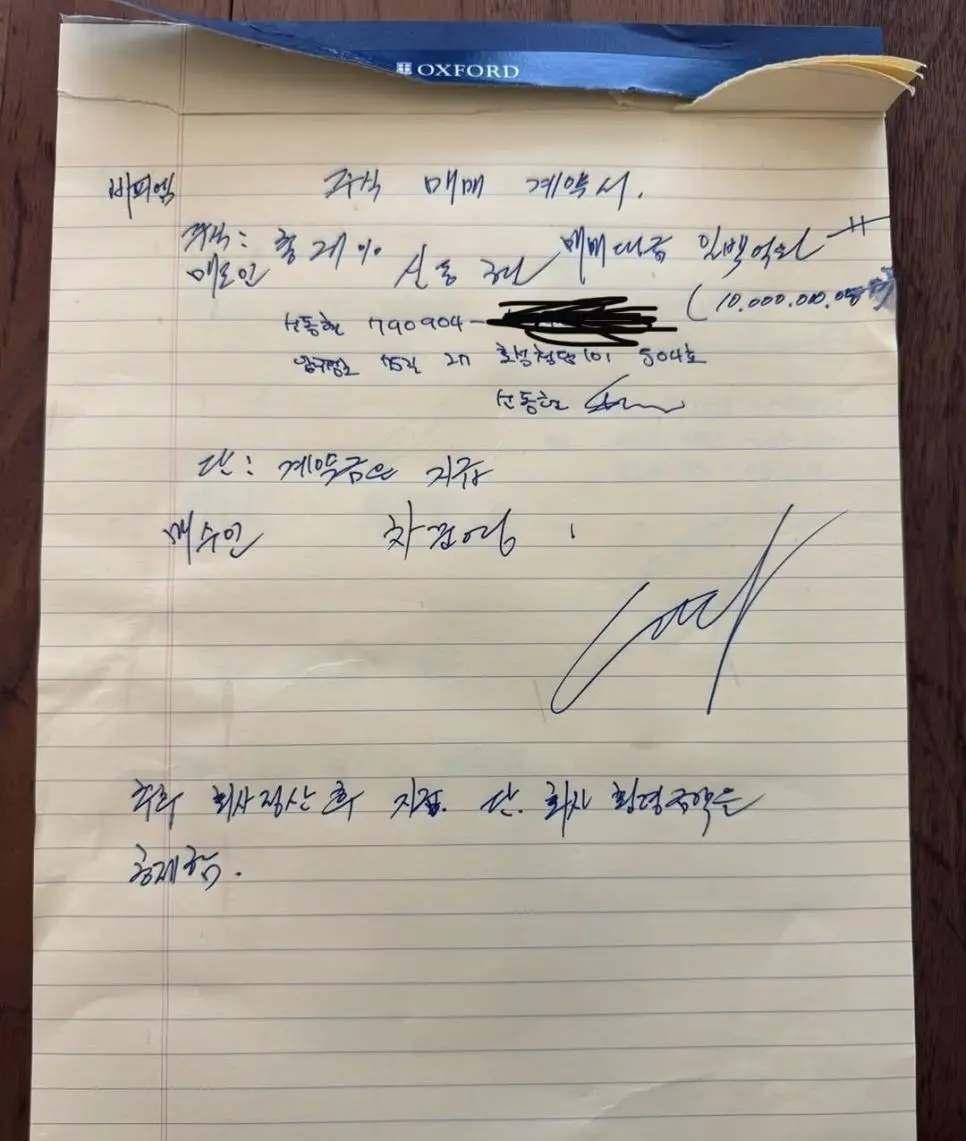 OXFORD
비피엠 주식 매매 계약서.
주식: 총 28% 매매대금 일백억원
매도인 신동현
(10.000.000.00
신동현 790904-
압구정로 75길 27 효성청담101 504호
신동현
단: 계약금은 지급
매수인 차가원
추후 회사정산 후 지급. 단. 회사 횡령금액은
공제함.